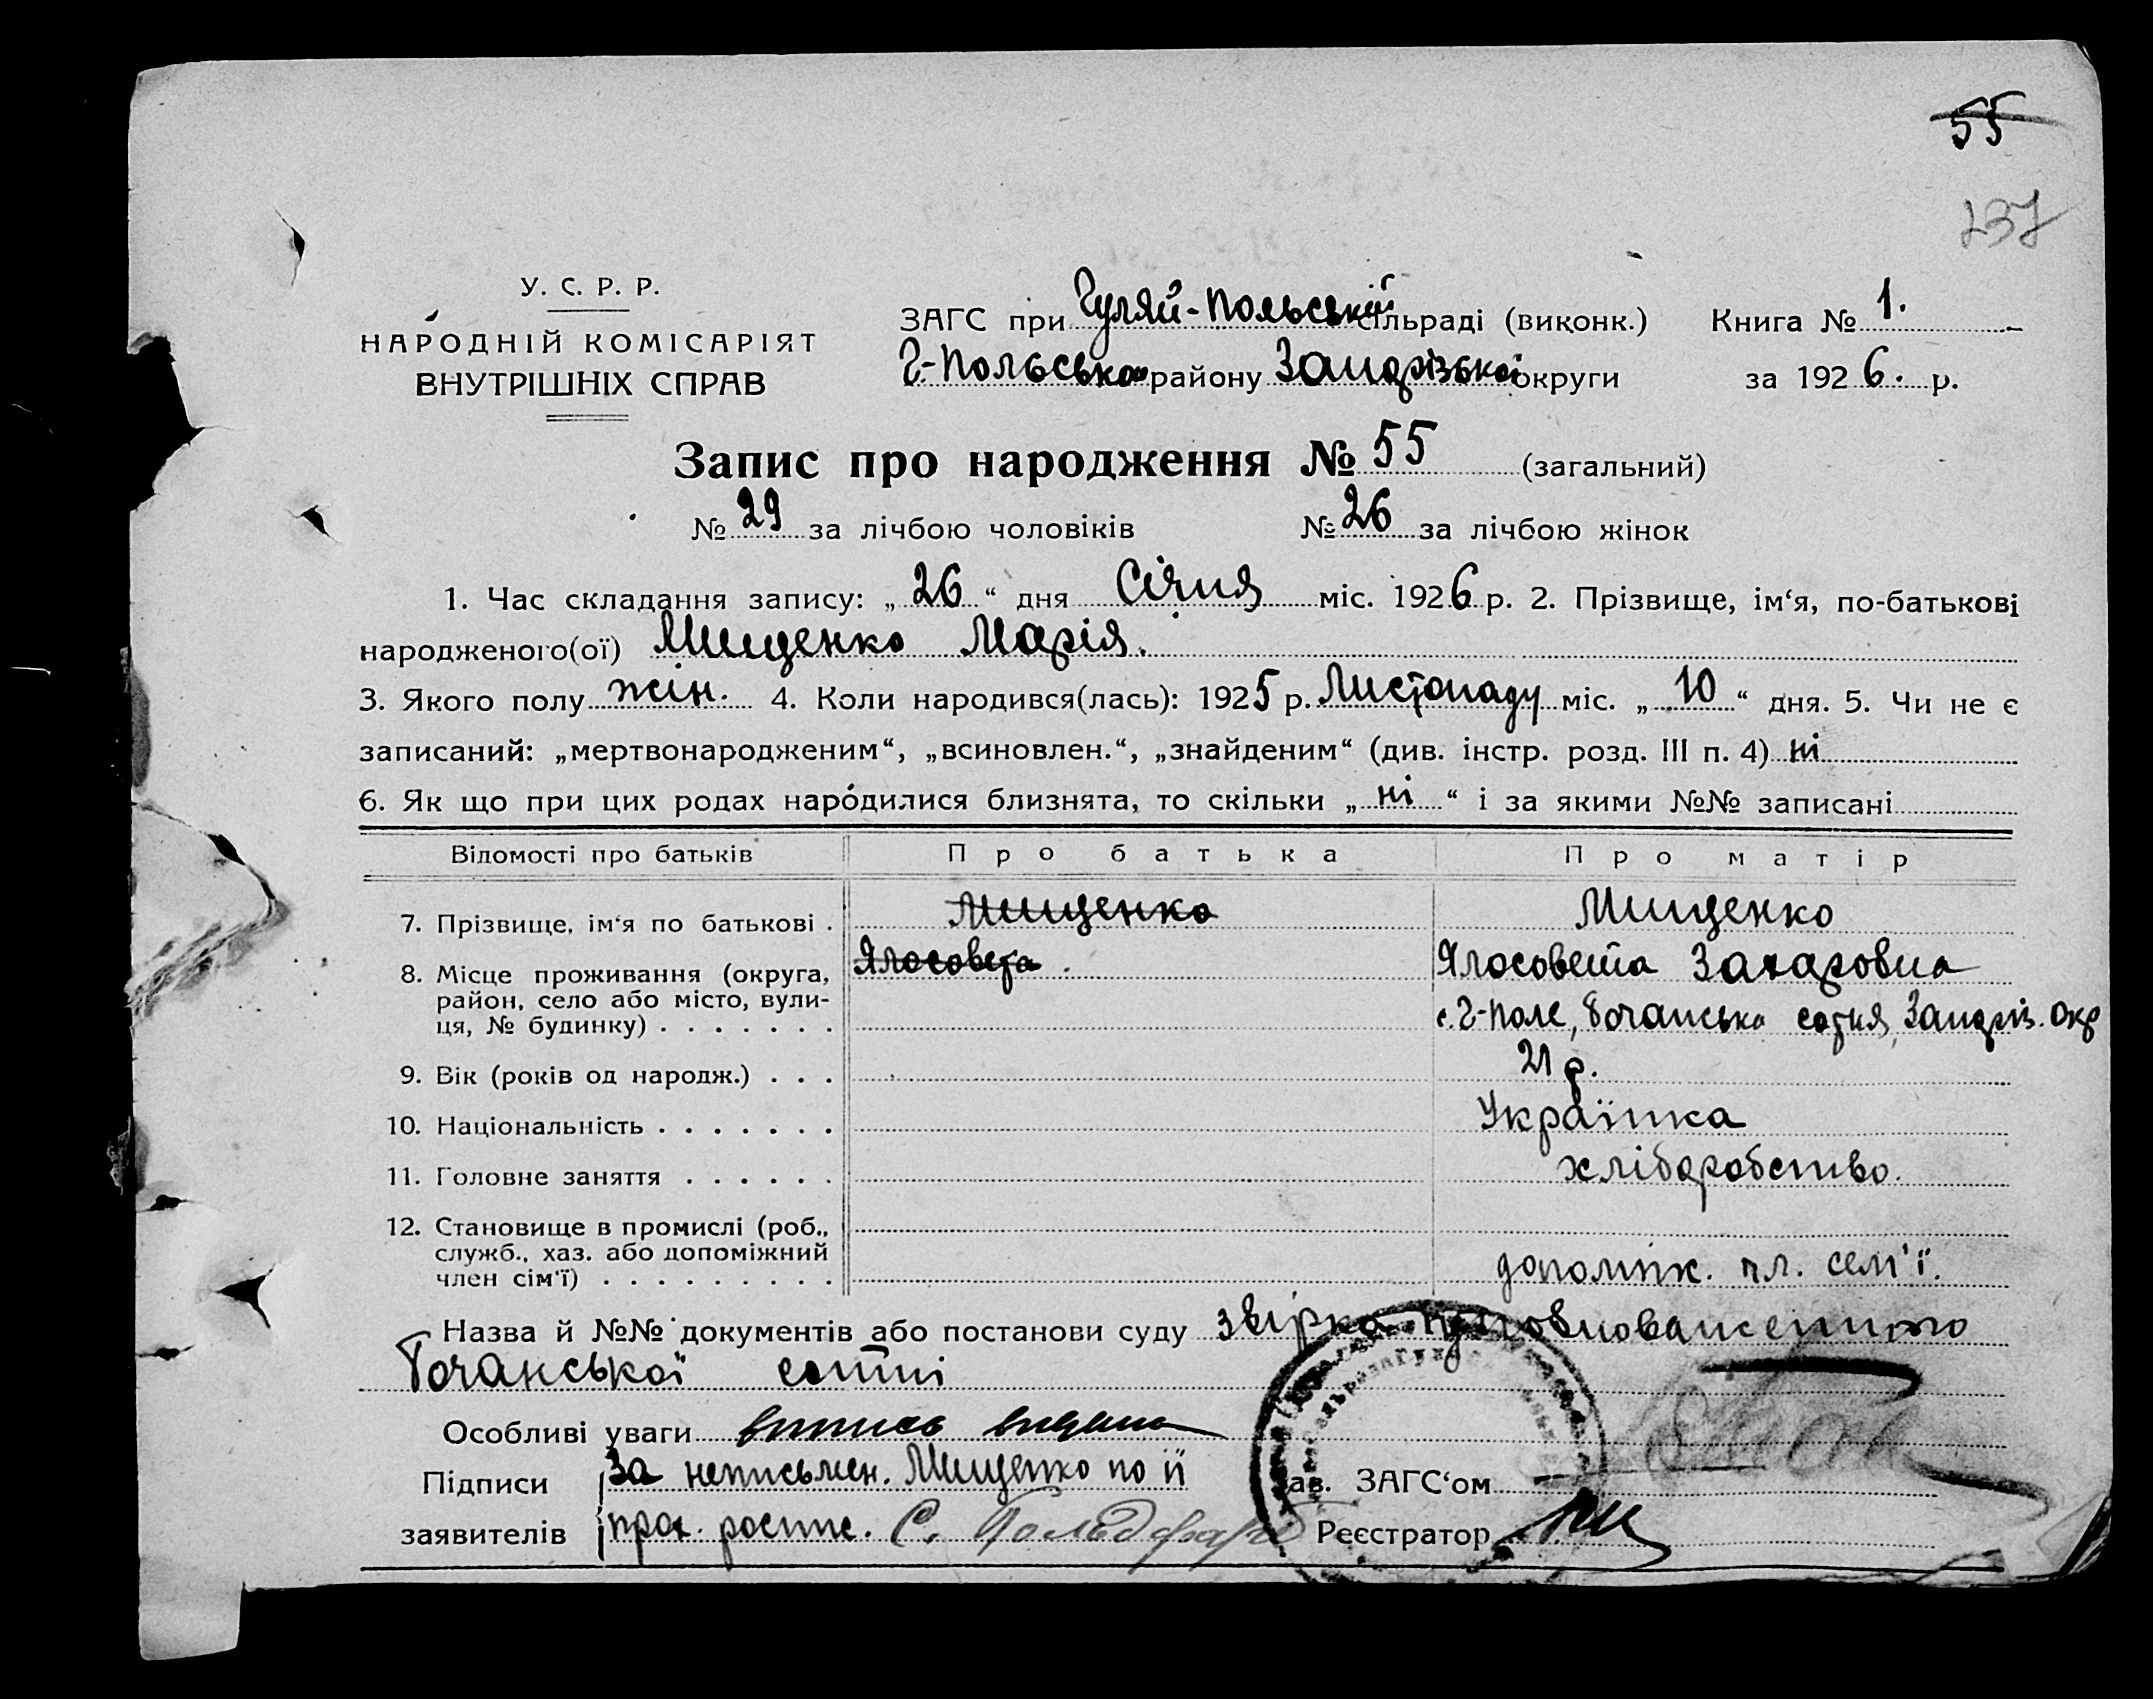 55
237
У. С. Р. Р.
НАРОДНІЙ КОМІСАРІЯТ
ВНУТРІШНІХ СПРАВ
ЗАГС при Гуляй-Польській сільраді (виконк.) Книга № 1.
Г-Польсько району Запорізької округи за 1926. р.
Запис про народження № 55 (загальний)
№ 29 за лічбою чоловіків № 26 за лічбою жінок
1. Час складання запису: „ 26 “ дня Січня міс. 1926 р. 2. Прізвище, ім‘я, по-батькові
народженого(ої) Мищенко Марія.
3. Якого полу жін. 4. Коли народився(лась): 1925 р. Листопаду міс. „ 10 “ дня. 5. Чи не є
записаний: „мертвонародженим“, „всиновлен.“, „знайденим“ (див. інстр. розд. III п. 4) ні
6. Як що при цих родах народилися близнята, то скільки „ ні “ і за якими №№ записані
Відомості про батьків Про батька Про матір
7. Прізвище, ім‘я по батькові . Мищенко Мищенко
8. Місце проживання (округа, Ялосовета . Ялосовета Захаровна
район, село або місто, вули-
ця, № будинку) . . . . . . . с. Г-Поле, сотня, Окр
9. Вік (років од народж.) . . . 21 р.
10. Національність . . . . . . . Українка
11. Головне заняття . . . . . . хліборобство.
12. Становище в промислі (роб.,
служб., хаз. або допоміжний
член сім‘ї) . . . . . . . . . допоміж. чл. сем'ї.
Назва й №№ документів або постанови суду звірка уповноваженного
сотні
Особливі уваги выпись видана
Підписи За неписьмен. Мищенко по її
заявителів прох. роспис. С. Гольдфарб
Зав. ЗАГС‘ом
Реєстратор